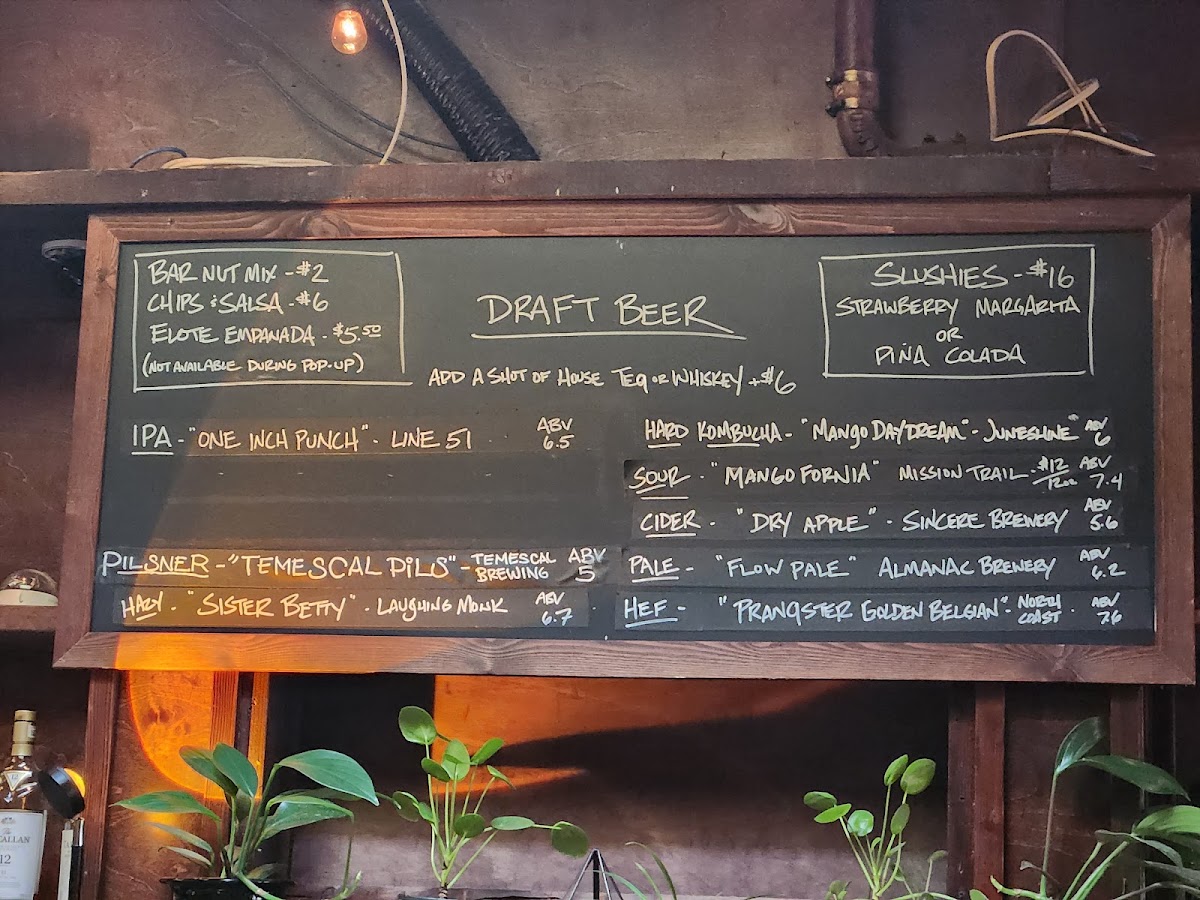 BAR NUT MIX - $2
CHIPS & SALSA - $6
ELOTE EMPANADA - $5.50
(NOT AVAILABLE DURING POP-UP)
DRAFT BEER
ADD A SHOT OF HOUSE TEQ OR WHISKEY +$6
SLUSHIES - $16
STRAWBERRY MARGARITA
OR
PIÑA COLADA
IPA - "ONE INCH PUNCH" - LINE 51 ABV 6.5
PILSNER - "TEMESCAL PILS" - TEMESCAL BREWING ABV 5
HAZY - "SISTER BETTY" - LAUGHING MONK ABV 6.7
HARD KOMBUCHA - "MANGO DAYDREAM" - JUNESHINE ABV 6
SOUR - "MANGO FORNIA" MISSION TRAIL - $12/12oz ABV 7.4
CIDER - "DRY APPLE" - SINCERE BREWERY ABV 5.6
PALE - "FLOW PALE" ALMANAC BREWERY ABV 6.2
HEF - "PRANQSTER GOLDEN BELGIAN" - NORTH COAST - ABV 7.6
The
MACALLAN
12